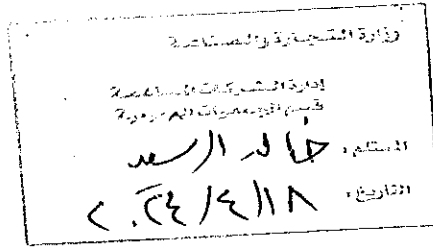 وزارة التجارة والصناعة
إدارة الشركات المساهمة
قسم الجمعيات العمومية
المستلم: خالد الرسعد
التاريخ: ١٨/٤/٢٠٢٤